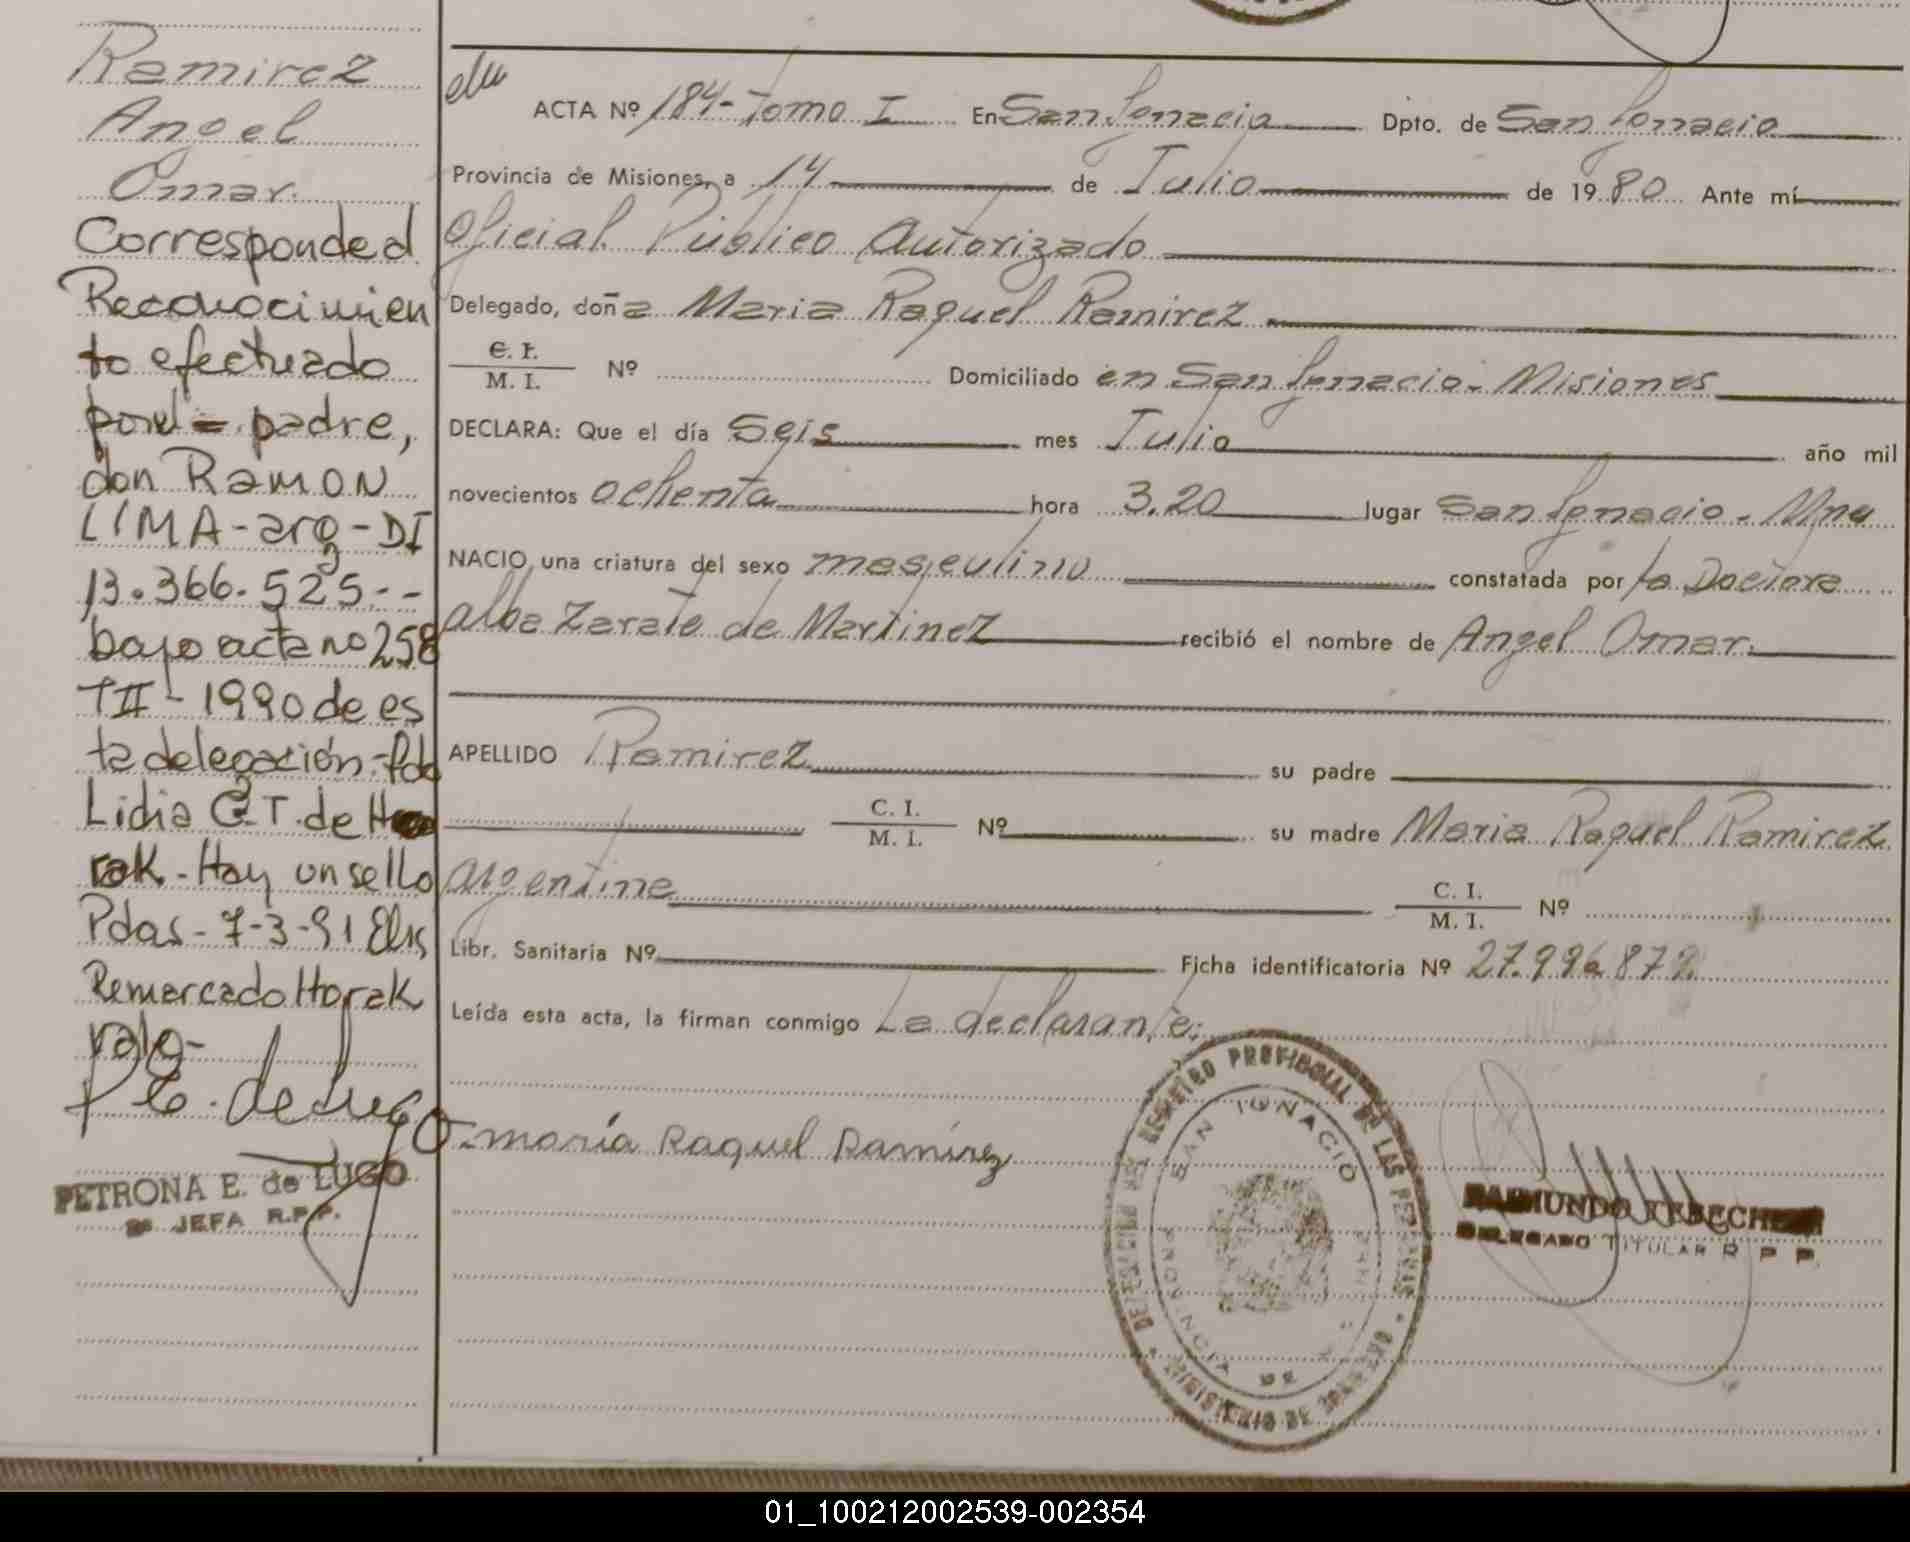 Ramirez
Angel
Omar.
Corresponded
Reconocimien
to efectuado
por el = padre,
don RAMON
LIMA - arg - DI
13.366.525--
bajo acta no 258
TII - 1990 de es
ta delegación - fdo
Lidia C. T. de Ho
rak - Hay un sello
Pdas - 7-3-91
Remarcado Horak
vale-
P E. de Lugo
PETRONA E. de LUGO
JEFA R.P.P.
ACTA Nº 184 - Tomo I En San Ignacio Dpto. de San Ignacio
Provincia de Misiones, a 14 de Julio de 1980 Ante mí
Oficial Público Autorizado
Delegado, doña Maria Raquel Ramirez
C. I.
M. I. Nº Domiciliado en San Ignacio - Misiones
DECLARA: Que el día Seis mes Julio año mil
novecientos ochenta hora 3.20 lugar San Ignacio - Mnes
NACIO una criatura del sexo masculino constatada por la Doctora
Alba Zarate de Martinez recibió el nombre de Angel Omar.
APELLIDO Ramirez su padre
C. I.
M. I. Nº su madre Maria Raquel Ramirez
Argentina C. I.
M. I. Nº
Libr. Sanitaria Nº Ficha identificatoria Nº 27.996.872.
Leída esta acta, la firman conmigo La declarante.
maría Raquel Ramírez
REGISTRO PROVINCIAL DE LAS PERSONAS
SAN IGNACIO
PROVINCIA DE
RAIMUNDO
DELEGADO TITULAR R P P
01_100212002539-002354